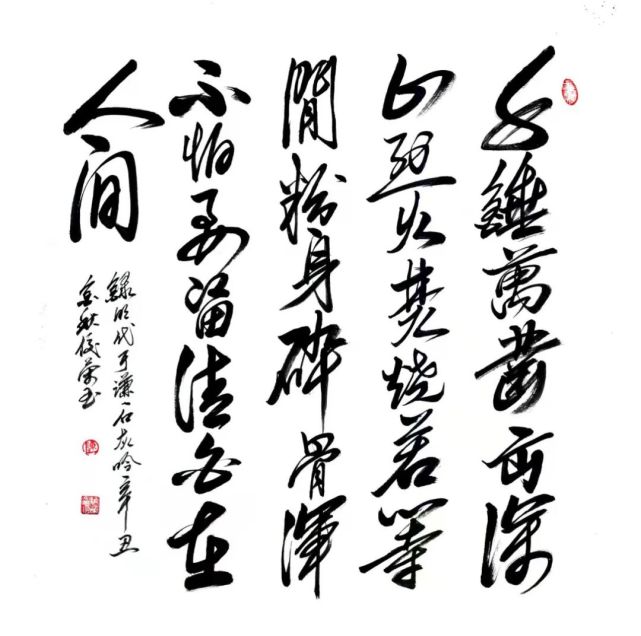 千錘萬凿出深
山烈火焚烧若等
閒粉身碎骨渾
不怕要留清白在
人间
錄明代于謙石灰吟辛丑
秋